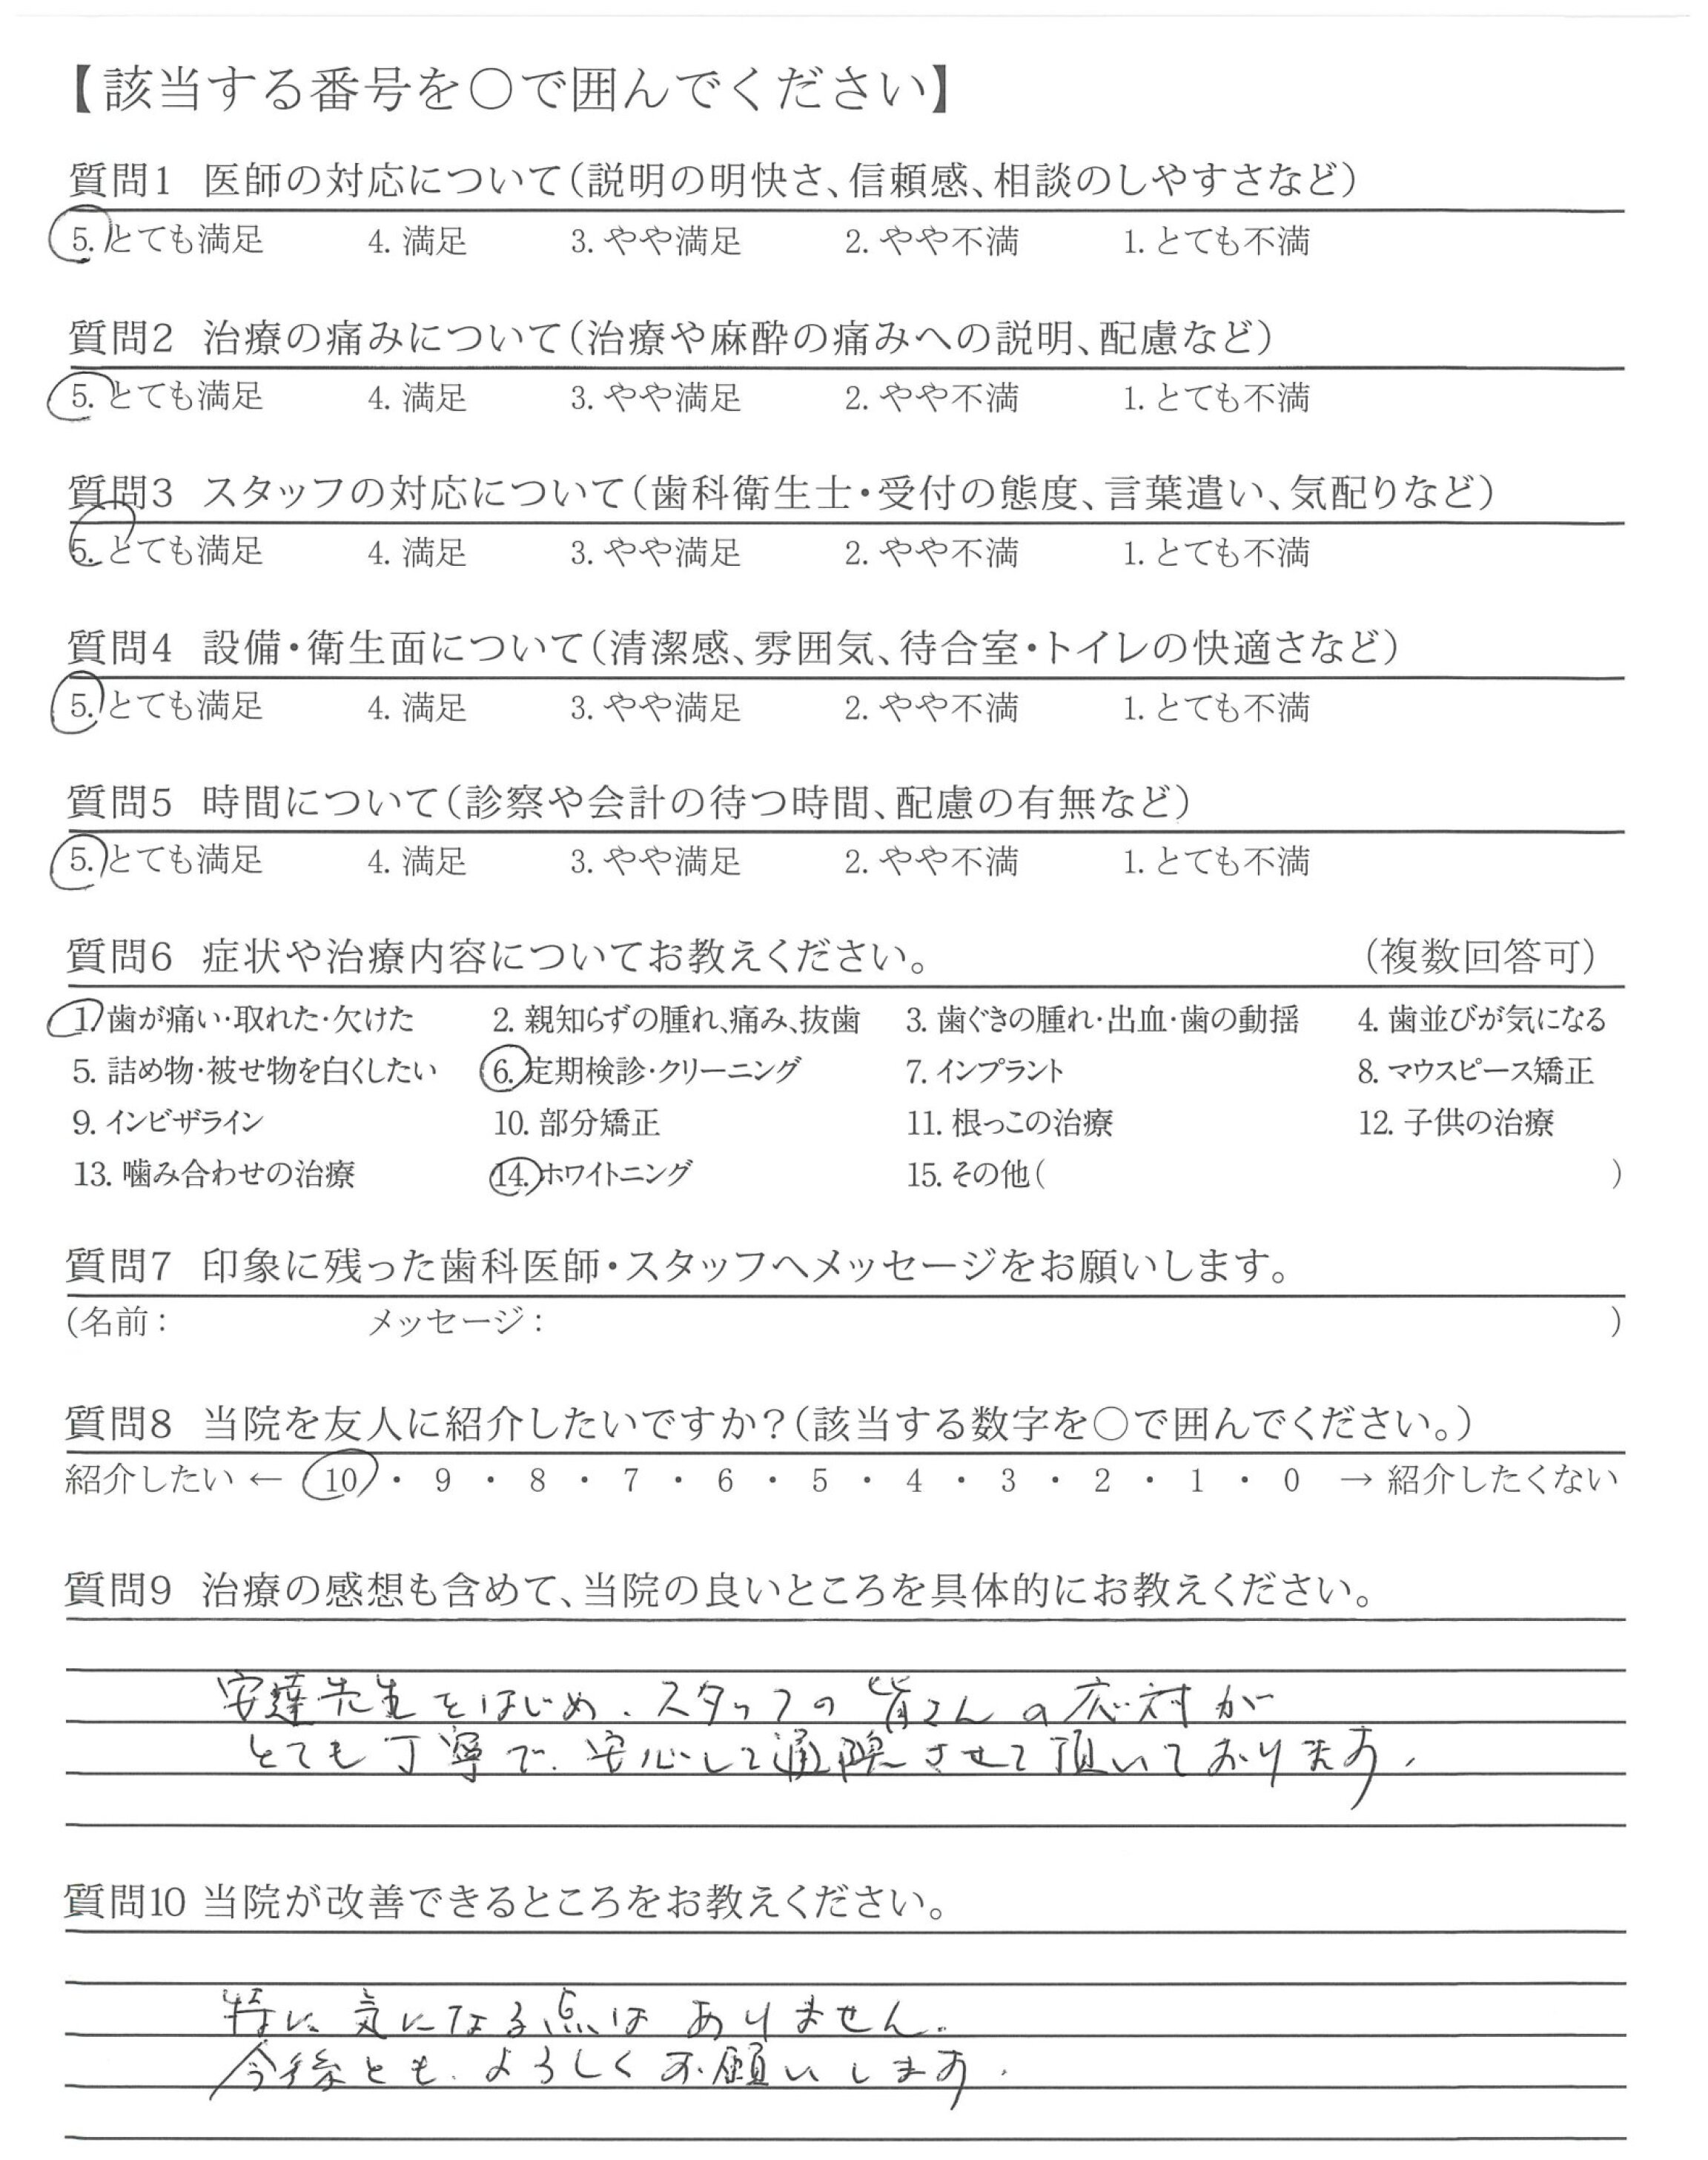 【該当する番号を○で囲んでください】
質問1 医師の対応について（説明の明快さ、信頼感、相談のしやすさなど）
5. とても満足 4. 満足 3. やや満足 2. やや不満 1. とても不満
質問2 治療の痛みについて（治療や麻酔の痛みへの説明、配慮など）
5. とても満足 4. 満足 3. やや満足 2. やや不満 1. とても不満
質問3 スタッフの対応について（歯科衛生士・受付の態度、言葉遣い、気配りなど）
5. とても満足 4. 満足 3. やや満足 2. やや不満 1. とても不満
質問4 設備・衛生面について（清潔感、雰囲気、待合室・トイレの快適さなど）
5. とても満足 4. 満足 3. やや満足 2. やや不満 1. とても不満
質問5 時間について（診察や会計の待つ時間、配慮の有無など）
5. とても満足 4. 満足 3. やや満足 2. やや不満 1. とても不満
質問6 症状や治療内容についてお教えください。 （複数回答可）
1. 歯が痛い・取れた・欠けた 2. 親知らずの腫れ、痛み、抜歯 3. 歯ぐきの腫れ・出血・歯の動揺 4. 歯並びが気になる
5. 詰め物・被せ物を白くしたい 6. 定期検診・クリーニング 7. インプラント 8. マウスピース矯正
9. インビザライン 10. 部分矯正 11. 根っこの治療 12. 子供の治療
13. 噛み合わせの治療 14. ホワイトニング 15. その他（ ）
質問7 印象に残った歯科医師・スタッフへメッセージをお願いします。
（名前： メッセージ： ）
質問8 当院を友人に紹介したいですか？（該当する数字を○で囲んでください。）
紹介したい ← 10 ・ 9 ・ 8 ・ 7 ・ 6 ・ 5 ・ 4 ・ 3 ・ 2 ・ 1 ・ 0 → 紹介したくない
質問9 治療の感想も含めて、当院の良いところを具体的にお教えください。
安達先生をはじめ、スタッフの皆さんの応対が
とても丁寧で、安心して通院させて頂いております。
質問10 当院が改善できるところをお教えください。
特に気になる点はありません。
今後とも、よろしくお願いします。